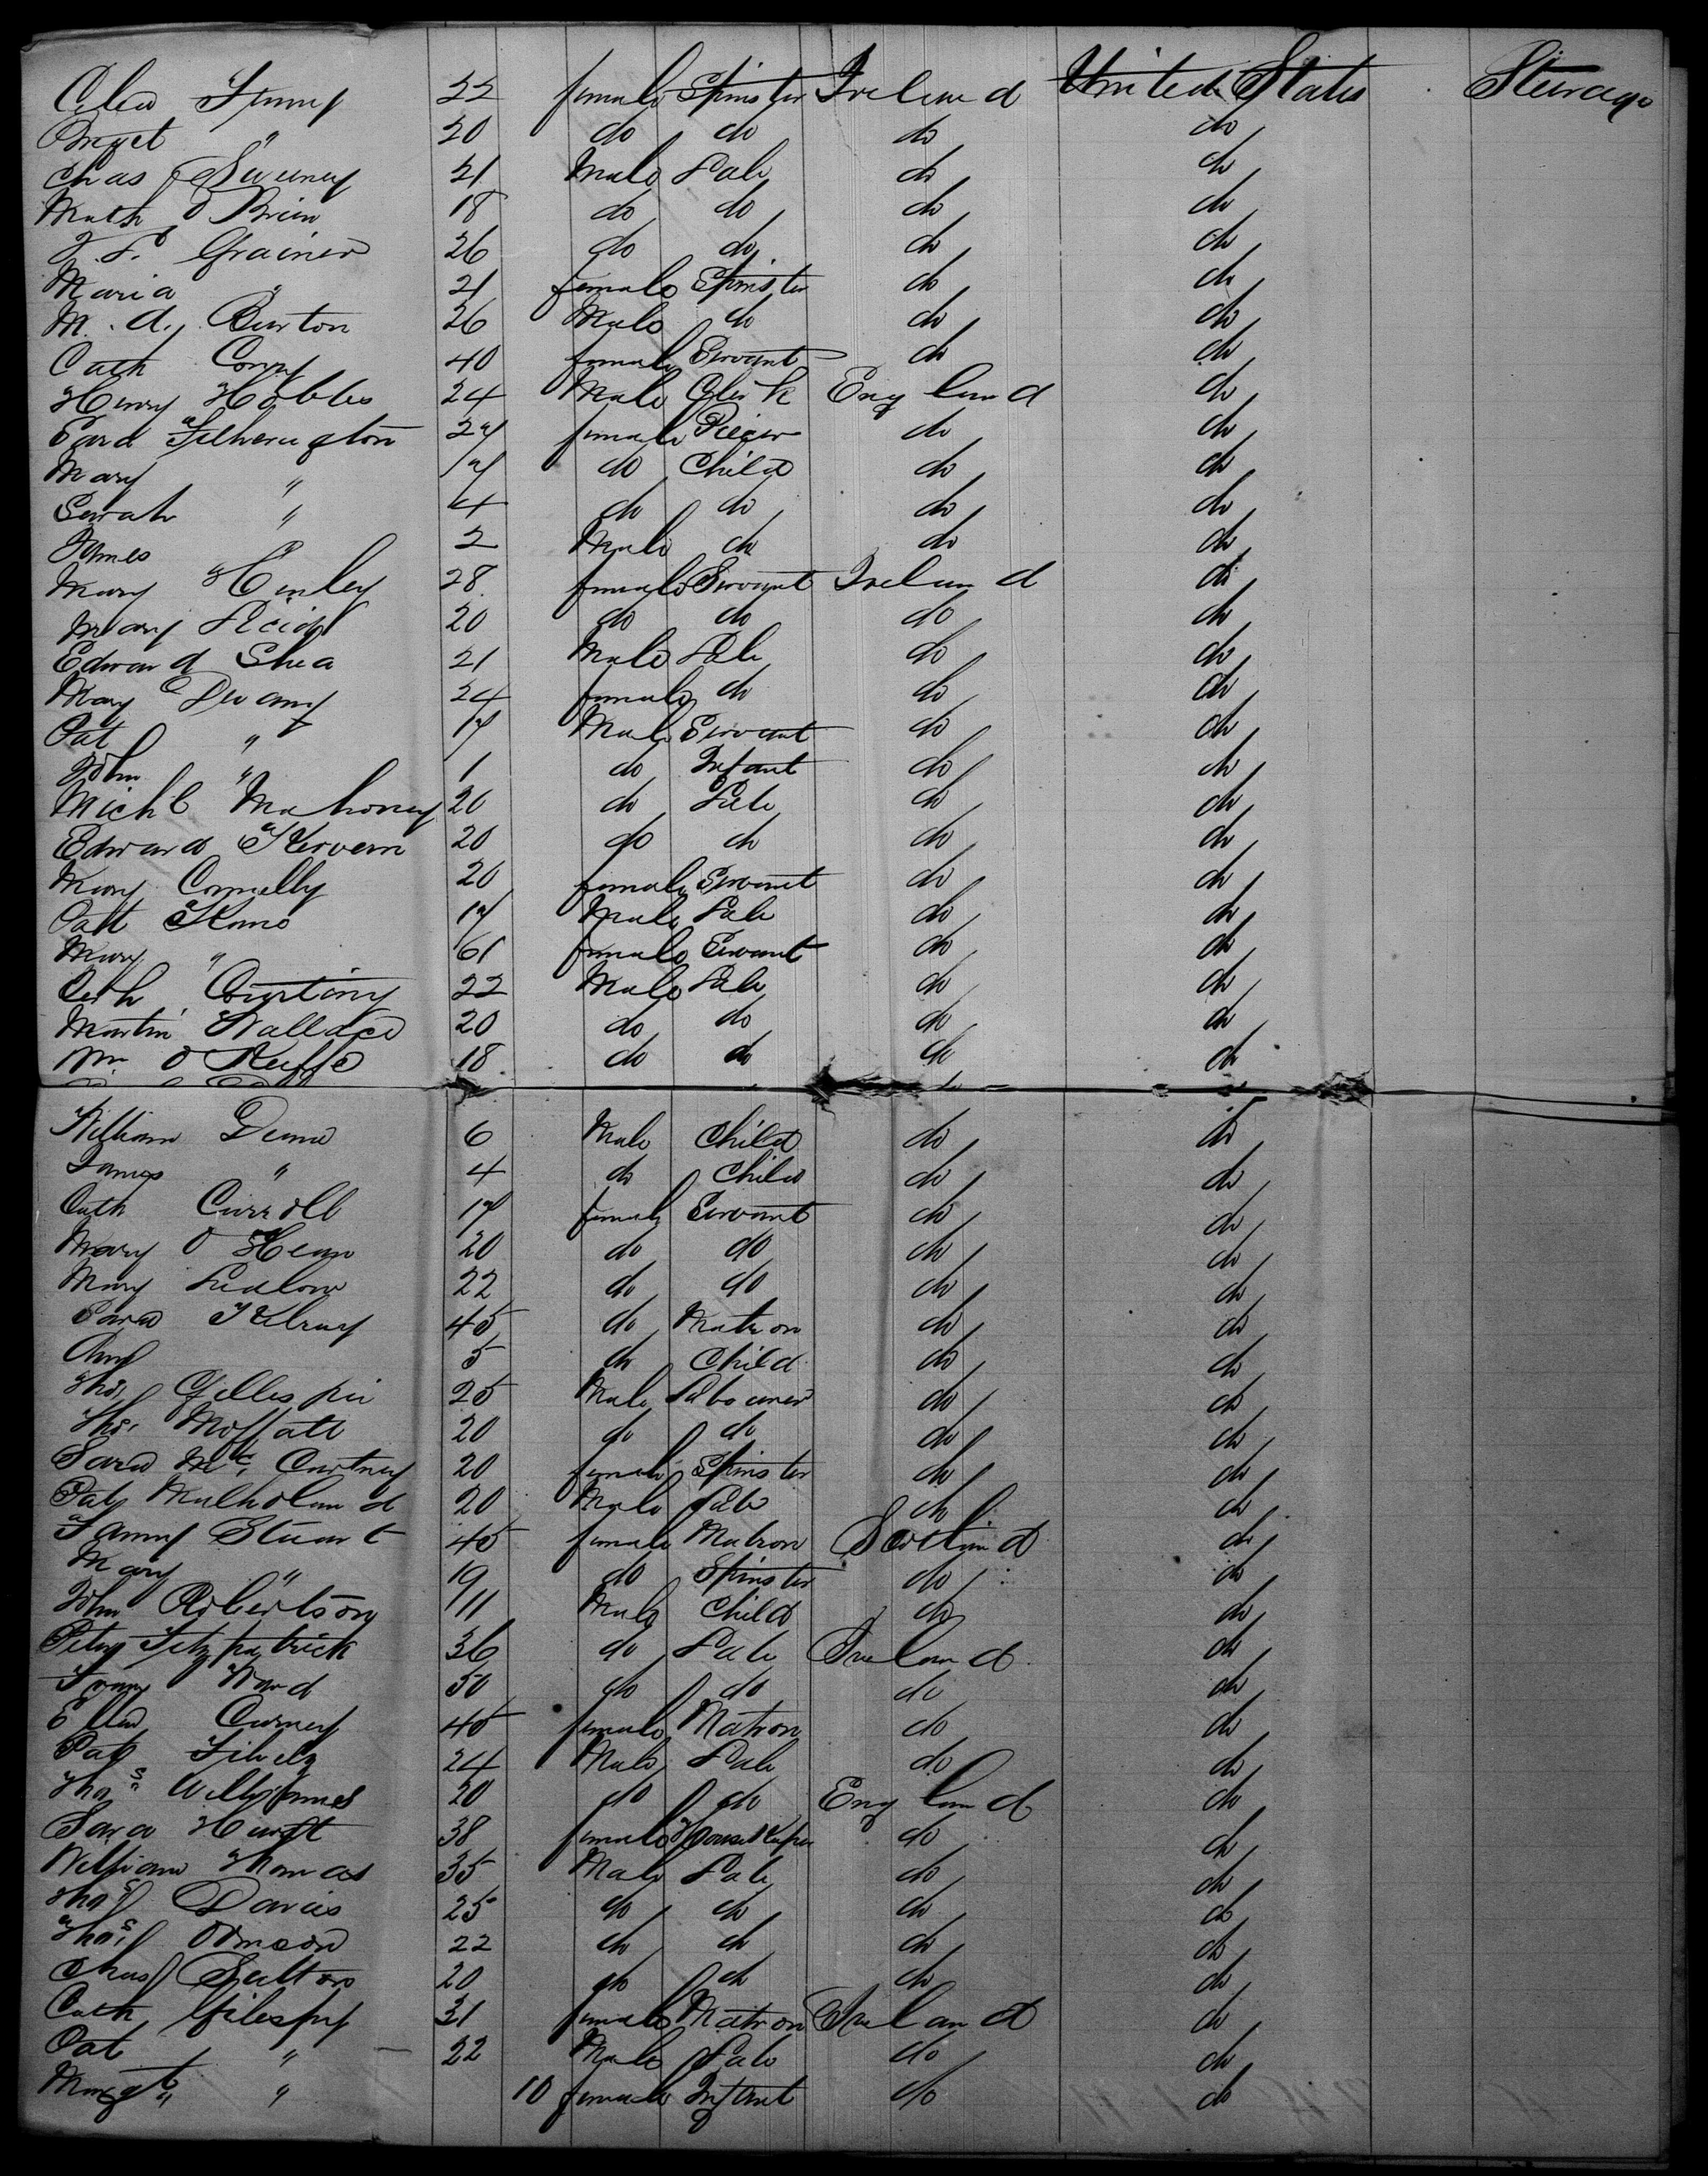 Celia 22 female Spinster Ireland United States Steerage
Margt " 20 do do do do
Chas Sweeney 21 Male Lab do do
Math O Brien 18 do do do do
Grainer 26 do do do do
Maria " 21 female Spinster do do
M. d. Burton 26 Male do do do
Cath Corry 40 female Servant do do
Henry Hobbles 24 Male Clerk England do
Fetherington 27 female do do
Mary " 7 do Child do do
Sarah " 4 do do do do
James " 2 Male do do do
Mary Henley 28 female Servant Ireland do
Mary Reid 20 do do do do
Edward Shea 21 Male Lab do do
Mary Devany 24 female do do do
Pat " 17 Male Servant do do
John " 1 do Infant do do
Michl Mahoney 20 do Lab do do
Edward 20 do do do do
Mary Connelly 20 female Servant do do
Patt Kane 17 Male Lab do do
Mary " 61 female Servant do do
22 Male Lab do do
Martin Wallace 20 do do do do
Wm O Keeffe 18 do do do do
William Dunne 6 Male Child do do
James " 4 do Child do do
Cath Carroll 17 female Servant do do
Mary O Hern 20 do do do do
Mary Ludlow 22 do do do do
Sara 45 do Matron do do
Ann 5 do Child do do
Thos Gillespie 25 Male Labourer do do
Thos Moffatt 20 do do do do
Sara Mc Cartney 20 female Spinster do do
Pat Mulholland 20 Male Lab do do
Fanny Stuart 45 female Matron Scotland do
Mary " 19 do Spinster do do
John Robertson 11 Male Child do do
Peter Fitzpatrick 36 do Lab Ireland do
Ward 50 do do do do
Ellen Carney 45 female Matron do do
Pat 24 Male Lab do do
Thos Williams 20 do do England do
Sara Hurst 38 female House Keeper do do
William Thomas 35 Male Lab do do
Thos Davies 25 do do do do
Thos 22 do do do do
Chas 20 do do do do
Cath Gilespy 31 female Matron Ireland do
Pat " 22 Male Lab do do
Margt " " 10 female Infant do do